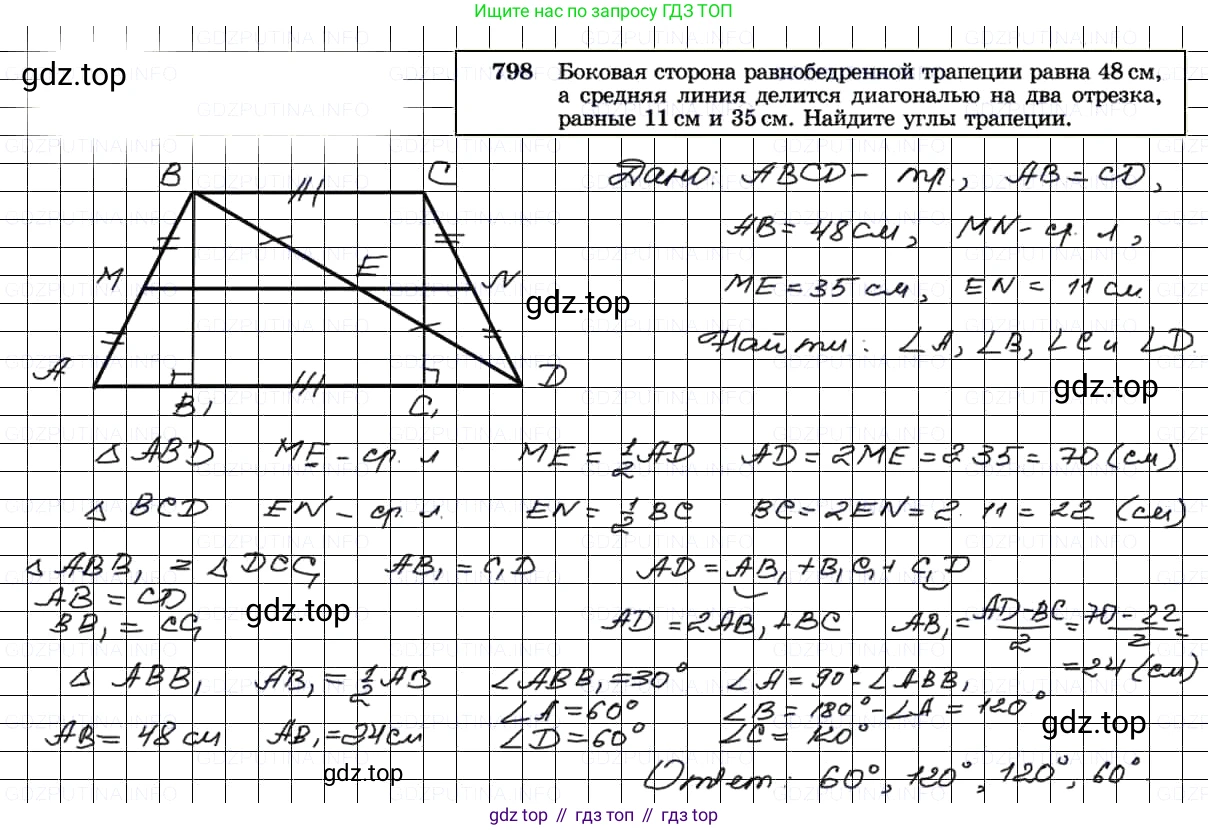 Ищите нас по запросу ГДЗ ТОП
gdz.top
798 Боковая сторона равнобедренной трапеции равна 48 см,
а средняя линия делится диагональю на два отрезка,
равные 11 см и 35 см. Найдите углы трапеции.
B C
Дано: ABCD – тр., AB = CD,
AB = 48 см, MN – ср. л,
M E N
ME = 35 см, EN = 11 см
gdz.top
Найти: ∠A, ∠B, ∠C и ∠D.
A D
gdz.top
B₁ C₁
△ ABD ME – ср. л ME = 1/2 AD AD = 2ME = 2·35 = 70 (см)
△ BCD EN – ср. л. EN = 1/2 BC BC = 2EN = 2·11 = 22 (см)
△ ABB₁ = △ DCC₁ AB₁ = C₁D AD = AB₁ + B₁C₁ + C₁D
AB = CD
gdz.top
BB₁ = CC₁ AD = 2AB₁ + BC AB₁ = AD-BC/2 = 70-22/2 =
= 24 (см)
△ ABB₁ AB₁ = 1/2 AB ∠ABB₁ = 30° ∠A = 90° - ∠ABB₁
∠A = 60° ∠B = 180° - ∠A = 120°
AB = 48 см AB₁ = 24 см ∠D = 60° ∠C = 120°
gdz.top
gdz.top
Ответ: 60°, 120°, 120°, 60°.
gdz.top // гдз топ // gdz.top
GDZPUTINA.INFO